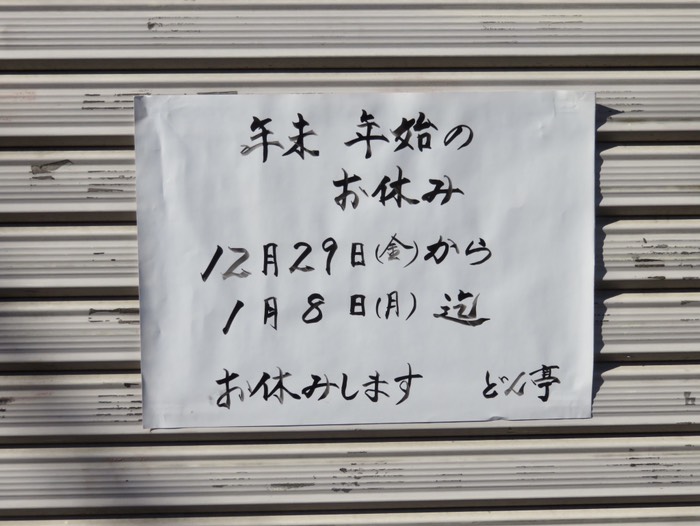 年末 年始の
お休み
12月29日(金)から
1月8日(月)迄
お休みします どん亭